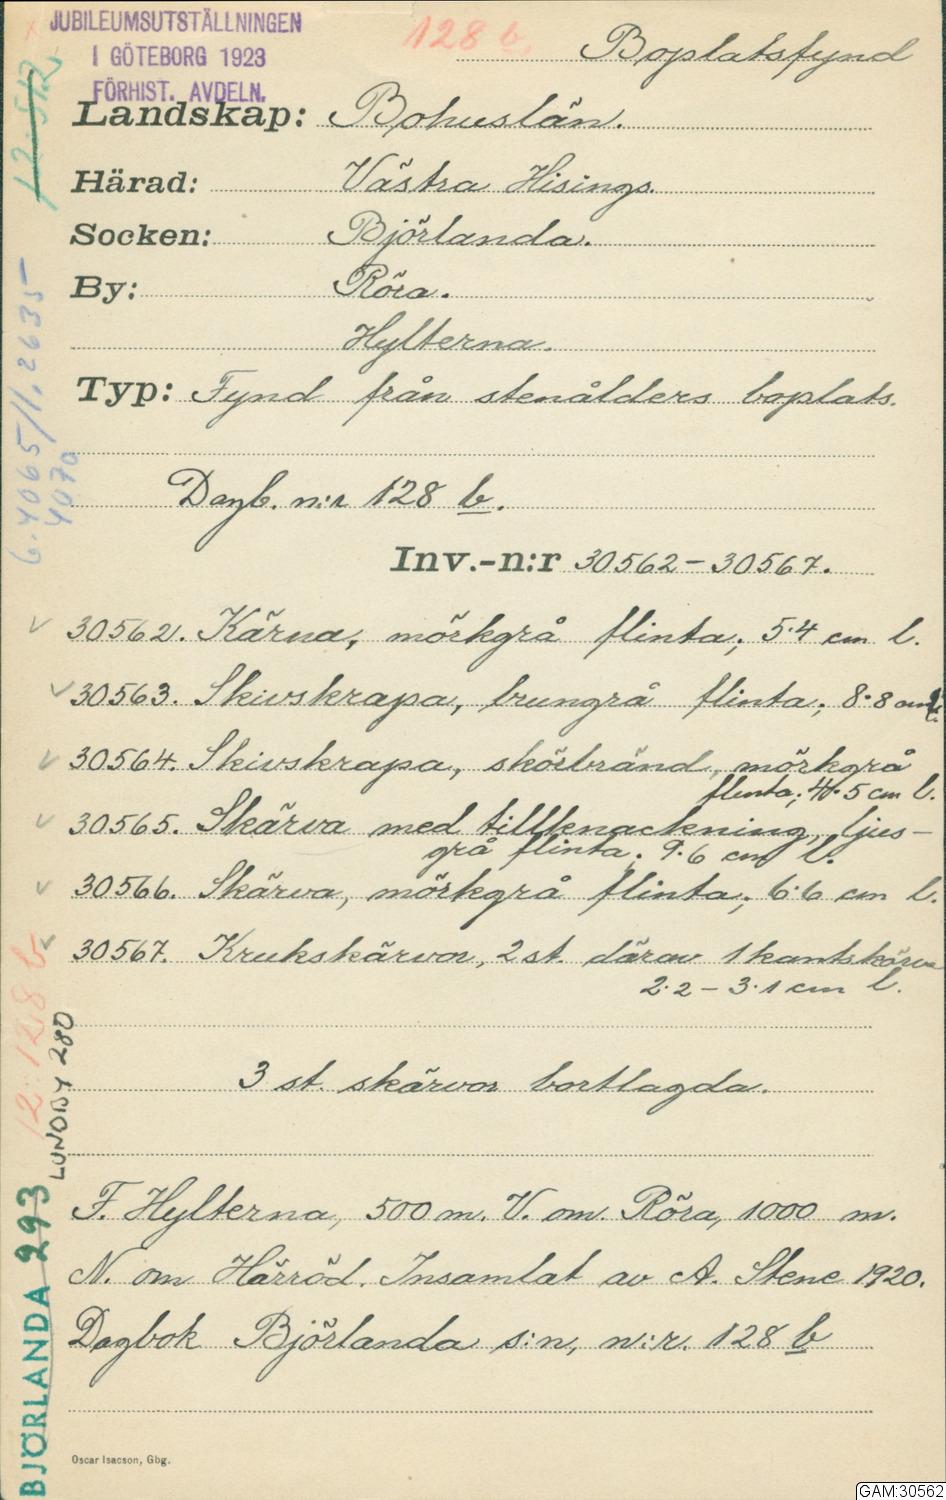 JUBILEUMSUTSTÄLLNINGEN
I GÖTEBORG 1923
FÖRHIST. AVDELN.
128 b.
Boplatsfynd
12:512
Landskap: Bohuslän.
Härad: Västra Hisings.
Socken: Björlanda.
By: Röra.
Hylterna.
Typ: Fynd från stenålders boplats.
Dagb. n:r 128 b.
Inv.-n:r 30562–30567.
30562. Kärna, mörkgrå flinta; 5.4 cm l.
30563. Skivskrapa, brungrå flinta; 8.8 cm l.
30564. Skivskrapa, skörbränd, mörkgrå
flinta; 4.5 cm l.
30565. Skärva med tillknackning, ljus-
grå flinta; 9.6 cm l.
30566. Skärva, mörkgrå flinta; 6.6 cm l.
30567. Krukskärvor, 2 st. därav 1 kantskärva
2.2 – 3.1 cm l.
3 st. skärvor bortlagda.
F. Hylterna, 500 m. V. om Röra, 1000 m.
N. om Härröd. Insamlat av A. Stene 1920.
Dagbok Björlanda s:n, n:r. 128 b
Oscar Isacson, Gbg.
6.4065/1.2635
4070
12:128 b
LUNDBY 280
BJÖRLANDA 293
GAM:30562